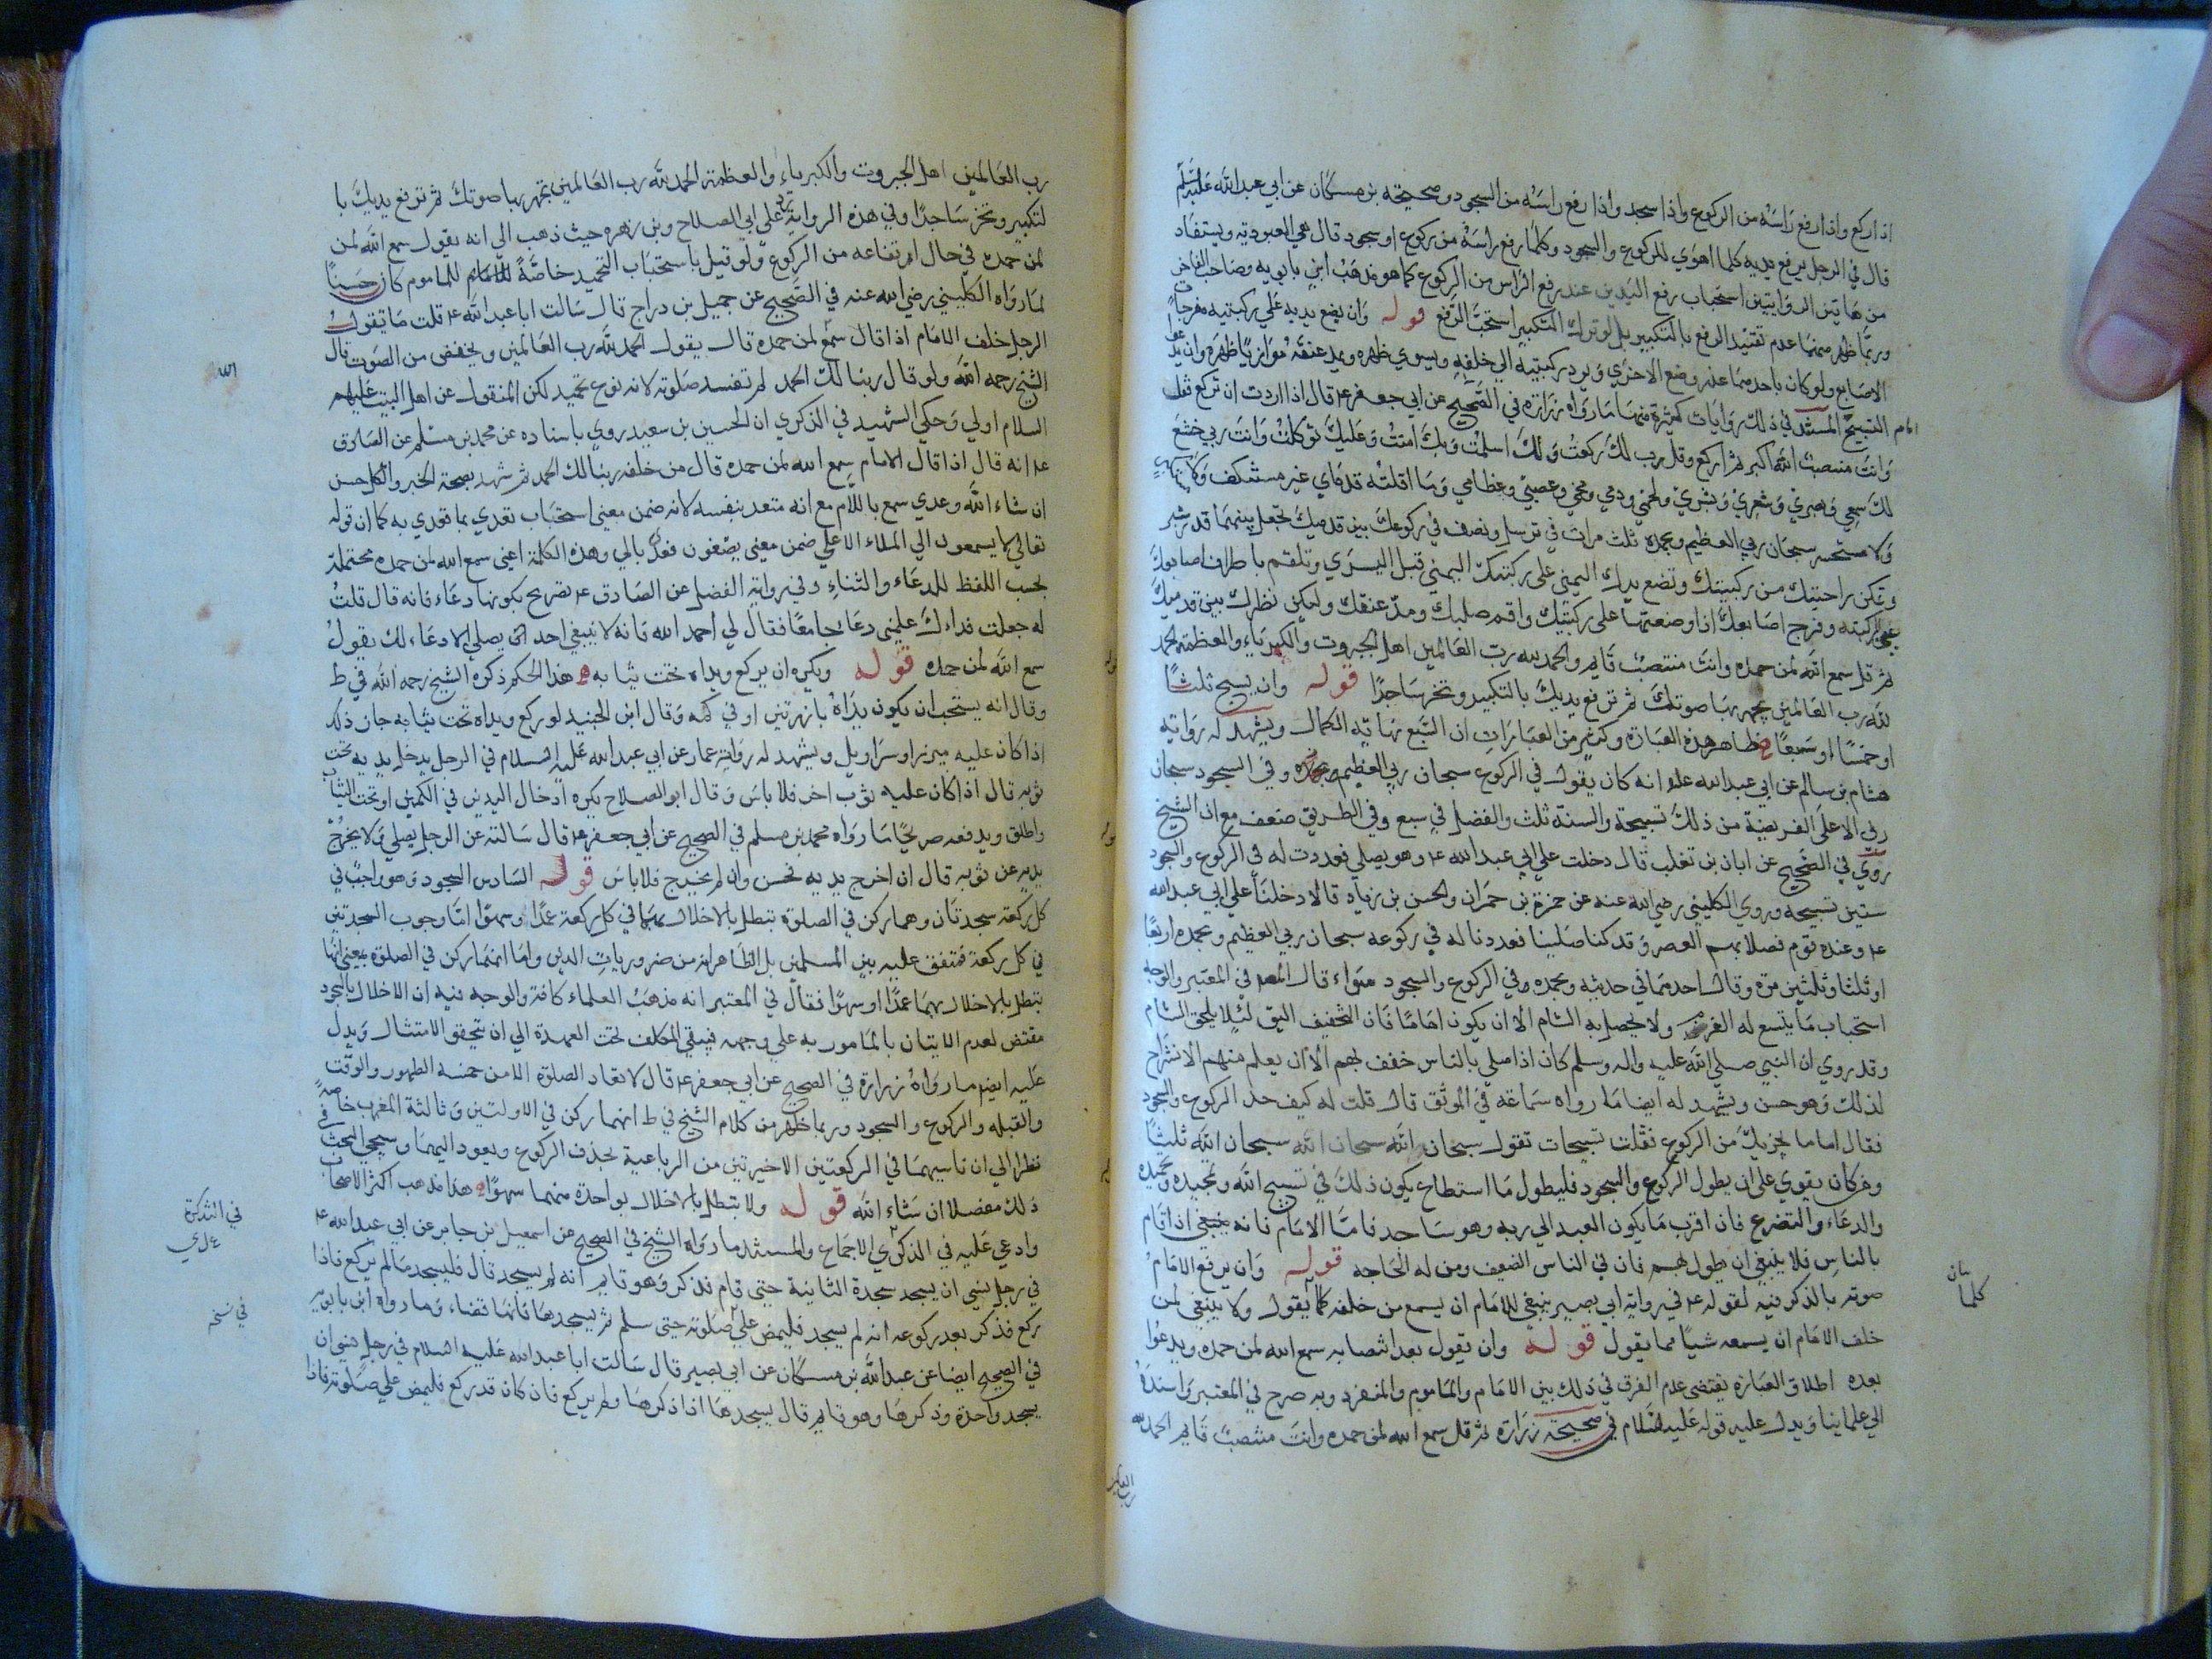 اذا ركع واذا رفع راسه من الركوع واذا سجد واذا رفع راسه من السجود وصحيحة بن مسكان عن ابي عبد الله عليه السلم
قال في الرجل يرفع يديه كلما اهوي للركوع والسجود وكلما رفع راسه من ركوع او سجود قال هي العبودية ويستفاد
من هاتين الروايتين استحباب رفع اليدين عند رفع الراس من الركوع كما هو مذهب ابني بابويه وصاحب الفاخر
وربما ظهر منهما عدم تقييد الرفع بالتكبير بل لو ترك التكبير استحب الرفع قوله وان يضع يديه علي ركبتيه مفرجات
الاصابع ولو كان باحدهما عذر وضع الاخري ويرد ركبتيه الي خلفه ويسوي ظهره ويمد عنقه موازيا ظهره وان يدعو
امام التسبيح المستند في ذلك روايات كثيرة منها ما رواه زرارة في الصحيح عن ابي جعفر ع قال اذا اردت ان تركع فقل
وانت منتصب الله اكبر ثم اركع وقل رب لك ركعت ولك اسلمت وبك امنت وعليك توكلت وانت ربي خشع
لك سمعي وبصري وشعري وبشري ولحمي ودمي ومخي وعصبي وعظامي وما اقلته قدماي غير مستنكف ولا مستكبر
ولا مستحسر سبحان ربي العظيم وبحمده ثلث مرات في ترسل وتصف في ركوعك بين قدميك تجعل بينهما قدر شبر
وتمكن راحتيك من ركبتيك وتضع يدك اليمني على ركبتك اليمني قبل اليسري وتلقم باطراف اصابعك
عين الركبة وفرج اصابعك اذا وضعتها على ركبتيك واقم صلبك ومد عنقك وليكن نظرك بين قدميك
ثم قل سمع الله لمن حمده وانت منتصب قايم والحمد لله رب العالمين اهل الجبروت والكبرياء والعظمة الحمد
لله رب العالمين تجهر بها صوتك ثم ترفع يديك بالتكبير وتخر ساجدا قوله وان يسبح ثلثا
او خمسا او سبعا ظاهر هذه العبارة وكثير من العبارات ان السبع نهاية الكمال ويشهد له رواية
هشام بن سالم عن ابي عبد الله ع انه كان يقول في الركوع سبحان ربي العظيم وبحمده وفي السجود سبحان
ربي الاعلى الفريضة من ذلك تسبيحة والسنة ثلث والفضل في سبع وفي الطريق ضعف مع ان الشيخ
روي في الصحيح عن ابان بن تغلب قال دخلت علي ابي عبد الله ع وهو يصلي فعددت له في الركوع والسجود
ستين تسبيحة وروي الكليني رضي الله عنه عن حمزة بن حمران والحسن بن زياد قالا دخلنا علي ابي عبد الله
ع وعنده قوم فصلا بهم العصر وقد كنا صلينا فعددنا له في ركوعه سبحان ربي العظيم وبحمده اربعا
او ثلثا وثلثين مرة وقال احدهما في حديثه وبحمده في الركوع والسجود سواء قال المصنف في المعتبر والوجه
استحباب ما يتسع له العزم ولا يحصل به السام الا ان يكون اماما فان التخفيف اليق لئلا يلحق السام
وقد روي ان النبي صلي الله عليه واله وسلم كان اذا صلي بالناس خفف بهم الا ان يعلم منهم الانشراح
لذلك وهو حسن ويشهد له ايضا ما رواه سماعة في الموثق قال قلت له كيف حد الركوع والسجود
فقال اما ما يجزيك من الركوع فثلث تسبيحات تقول سبحان الله سبحان الله سبحان الله ثلثا
ومن كان يقوي على ان يطول الركوع والسجود فليطول ما استطاع يكون ذلك في تسبيح الله وتحميده وتمجيده
والدعاء والتضرع فان اقرب ما يكون العبد الي ربه وهو ساجد فاما الامام فانه ينبغي اذا قام
بالناس فلا ينبغي ان يطول بهم فان في الناس الضعيف ومن له الحاجه قوله وان يرفع الامام
صوته بالذكر فيه لقوله ع في رواية ابي بصير ينبغي للامام ان يسمع من خلفه كلما يقول ولا ينبغي لمن
خلف الامام ان يسمعه شيا مما يقول قوله وان يقول بعد انتصابه سمع الله لمن حمده ويدعوا
بعده اطلاق العبارة يقتضي عدم الفرق في ذلك بين الامام والماموم والمنفرد وبه صرح في المعتبر واسنده
الي علماينا ويدل عليه قوله عليه السلام في صحيحة زرارة ثم قل سمع الله لمن حمده وانت منتصب قايم الحمد لله
رب العالمين
بيان
كلما
رب العالمين اهل الجبروت والكبرياء والعظمة الحمد لله رب العالمين تجهر بها صوتك ثم ترفع يديك با
لتكبير وتخر ساجدا وفي هذه الرواية رد علي ابي الصلاح وبن زهره حيث ذهب الي انه يقول سمع الله لمن
لمن حمده في حال ارتفاعه من الركوع ولو قيل باستحباب التحميد خاصة للماموم كان حسنا
لما رواه الكليني رضي الله عنه في الصحيح عن جميل بن دراج قال سالت ابا عبد الله ع قلت ما تقول
الرجل خلف الامام اذا قال سمع لمن حمده قال يقول الحمد لله رب العالمين ويخفض من الصوت قال
الشيخ رحمه الله ولو قال ربنا لك الحمد لم تفسد صلوته لانه نوع تحميد لكن المنقول عن اهل البيت عليهم
السلام اولي وحكي الشهيد في الذكري ان الحسين بن سعيد روي باسناده عن محمد بن مسلم عن الصادق
ع انه قال اذا قال الامام سمع الله لمن حمده قال من خلفه ربنا لك الحمد ثم شهد بصحة الخبر والكل حسن
ان شاء الله وعدي سمع باللام مع انه متعد بنفسه لانه ضمن معني استجاب تعدي بما تعدي به كما ان قوله
تعالي لا يسمعون الي الملاء الاعلي ضمن معني يصغون فعدي بالي وهذه الكلمة اعني سمع الله لمن حمده محتملة
بحسب اللفظ للدعاء والثناء وفي رواية الفضل عن الصادق ع تصريح بكونها دعاء فانه قال قلت
له جعلت فداءك علمني دعاء جامعا فقال لي احمد الله فانه لا ينبغي احد يصلي الا دعاء لك يقول
سمع الله لمن حمده قوله ويكره ان يركع ويداه تحت ثيابه هذا الحكم ذكره الشيخ رحمه الله في ط
وقال انه يستحب ان يكون يداه بارزتين او في كمه وقال ابن الجنيد لو ركع ويداه تحت ثيابه جاز ذلك
اذا كان عليه ميزر او سراويل ويشهد له رواية عمار عن ابي عبد الله عليه السلام في الرجل يدخل يديه تحت
ثوبه قال اذا كان عليه ثوب اخر فلا باس وقال ابو الصلاح يكره ادخال اليدين في الكمين او تحت الثياب
واطلق ويدفعه صريحا ما رواه محمد بن مسلم في الصحيح عن ابي جعفر ع قال سالته عن الرجل يصلي ولا يخرج
يديه عن ثوبه قال ان اخرج يديه فحسن وان لم يخرج فلا باس قوله السادس السجود وهو واجب في
كل ركعة سجدتان وهما ركن في الصلوة تبطل بالاخلال بهما في كل ركعة عمدا وسهوا اما وجوب السجدتين
في كل ركعة فمتفق عليه بين المسلمين بل الظاهر انه من ضروريات الدين واما انهما ركن في الصلوة بمعني انها
تبطل بالاخلال بهما عمدا او سهوا فقال في المعتبر انه مذهب العلماء كافة والوجه فيه ان الاخلال بالسجود
مقتض لعدم الاتيان بالمامور به علي وجهه فيبقي المكلف تحت العهدة الي ان يتحقق الامتثال ويدل
عليه ايضا ما رواه زرارة في الصحيح عن ابي جعفر ع قال لا تعاد الصلوة الا من خمسة الطهور والوقت
والقبله والركوع والسجود وربما ظهر من كلام الشيخ في ط انهما ركن في الاولتين وثالثة المغرب خاصة
نظرا الي ان ناسيهما في الركعتين الاخيرتين من الرباعية يحذف الركوع ويعود اليهما وسيجي البحث في
ذلك مفصلا ان شاء الله قوله ولا تبطل بالاخلال بواحدة منهما سهوا هذا مذهب اكثر الاصحاب
وادعي عليه في الذكري الاجماع والمستند ما رواه الشيخ في الصحيح عن اسمعيل بن جابر عن ابي عبد الله ع
في رجل نسي ان يسجد سجدة الثانية حتي قام فذكر وهو قايم انه لم يسجد قال فليسجد ما لم يركع فاذا
ركع فذكر بعد ركوعه انه لم يسجد فليمض علي صلوته حتي يسلم ثم يسجدها فانها قضاء وما رواه ابن بابويه
في الصحيح ايضا عن عبد الله بن مسكان عن ابي بصير قال سالت ابا عبد الله عليه السلام في رجل نسي ان
يسجد واحدة وذكرها وهو قايم قال يسجدها اذا ذكرها ولم يركع فان كان قد ركع فليمض علي صلوته فاذا
الله
في التذكرة
في نسخة